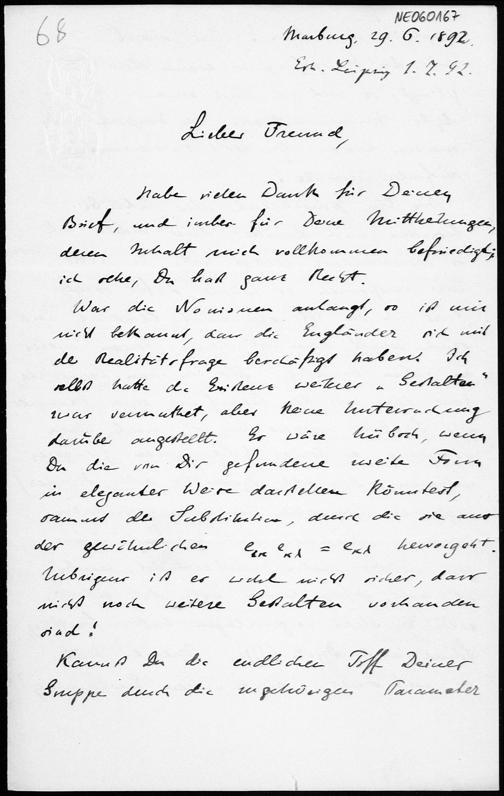 NE060167
68
Marburg, 29. 6. 1892.
Erh. Leipzig 1. 7. 92.
Lieber Freund,
habe vielen Dank für Deinen
Brief, und insbes. für Deine Mittheilungen,
deren Inhalt mich vollkommen befriedigt;
ich sehe, Du hast ganz Recht.
Was die Nonionen anlangt, so ist mir
nicht bekannt, dass die Engländer sich mit
der Realitätsfrage beschäftigt haben. Ich
selbst hatte die Existenz weiterer „Gestalten"
zwar vermuthet, aber keine Untersuchung
darüber angestellt. Es wäre hübsch, wenn
Du die von Dir gefundene zweite Form
in eleganter Weise darstellen könntest,
sammt der Substitution, durch die sie aus
der gewöhnlichen e e = e hervorgeht.
Uebrigens ist es wohl nicht sicher, dass
nicht noch weitere Gestalten vorhanden
sind!
Kannst Du die endlichen Tfff Deiner
Gruppe durch die zugehörigen Parameter